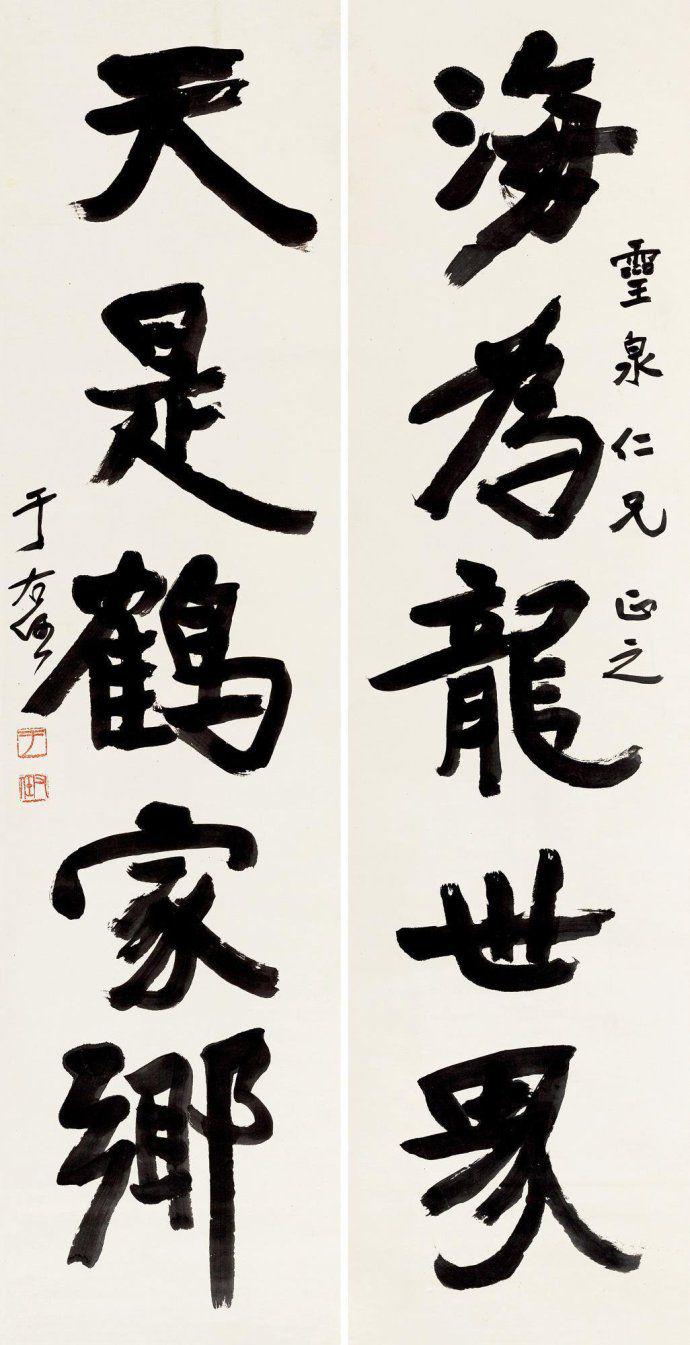 海為龍世界
靈泉仁兄 正之
天是鶴家鄉
于右任